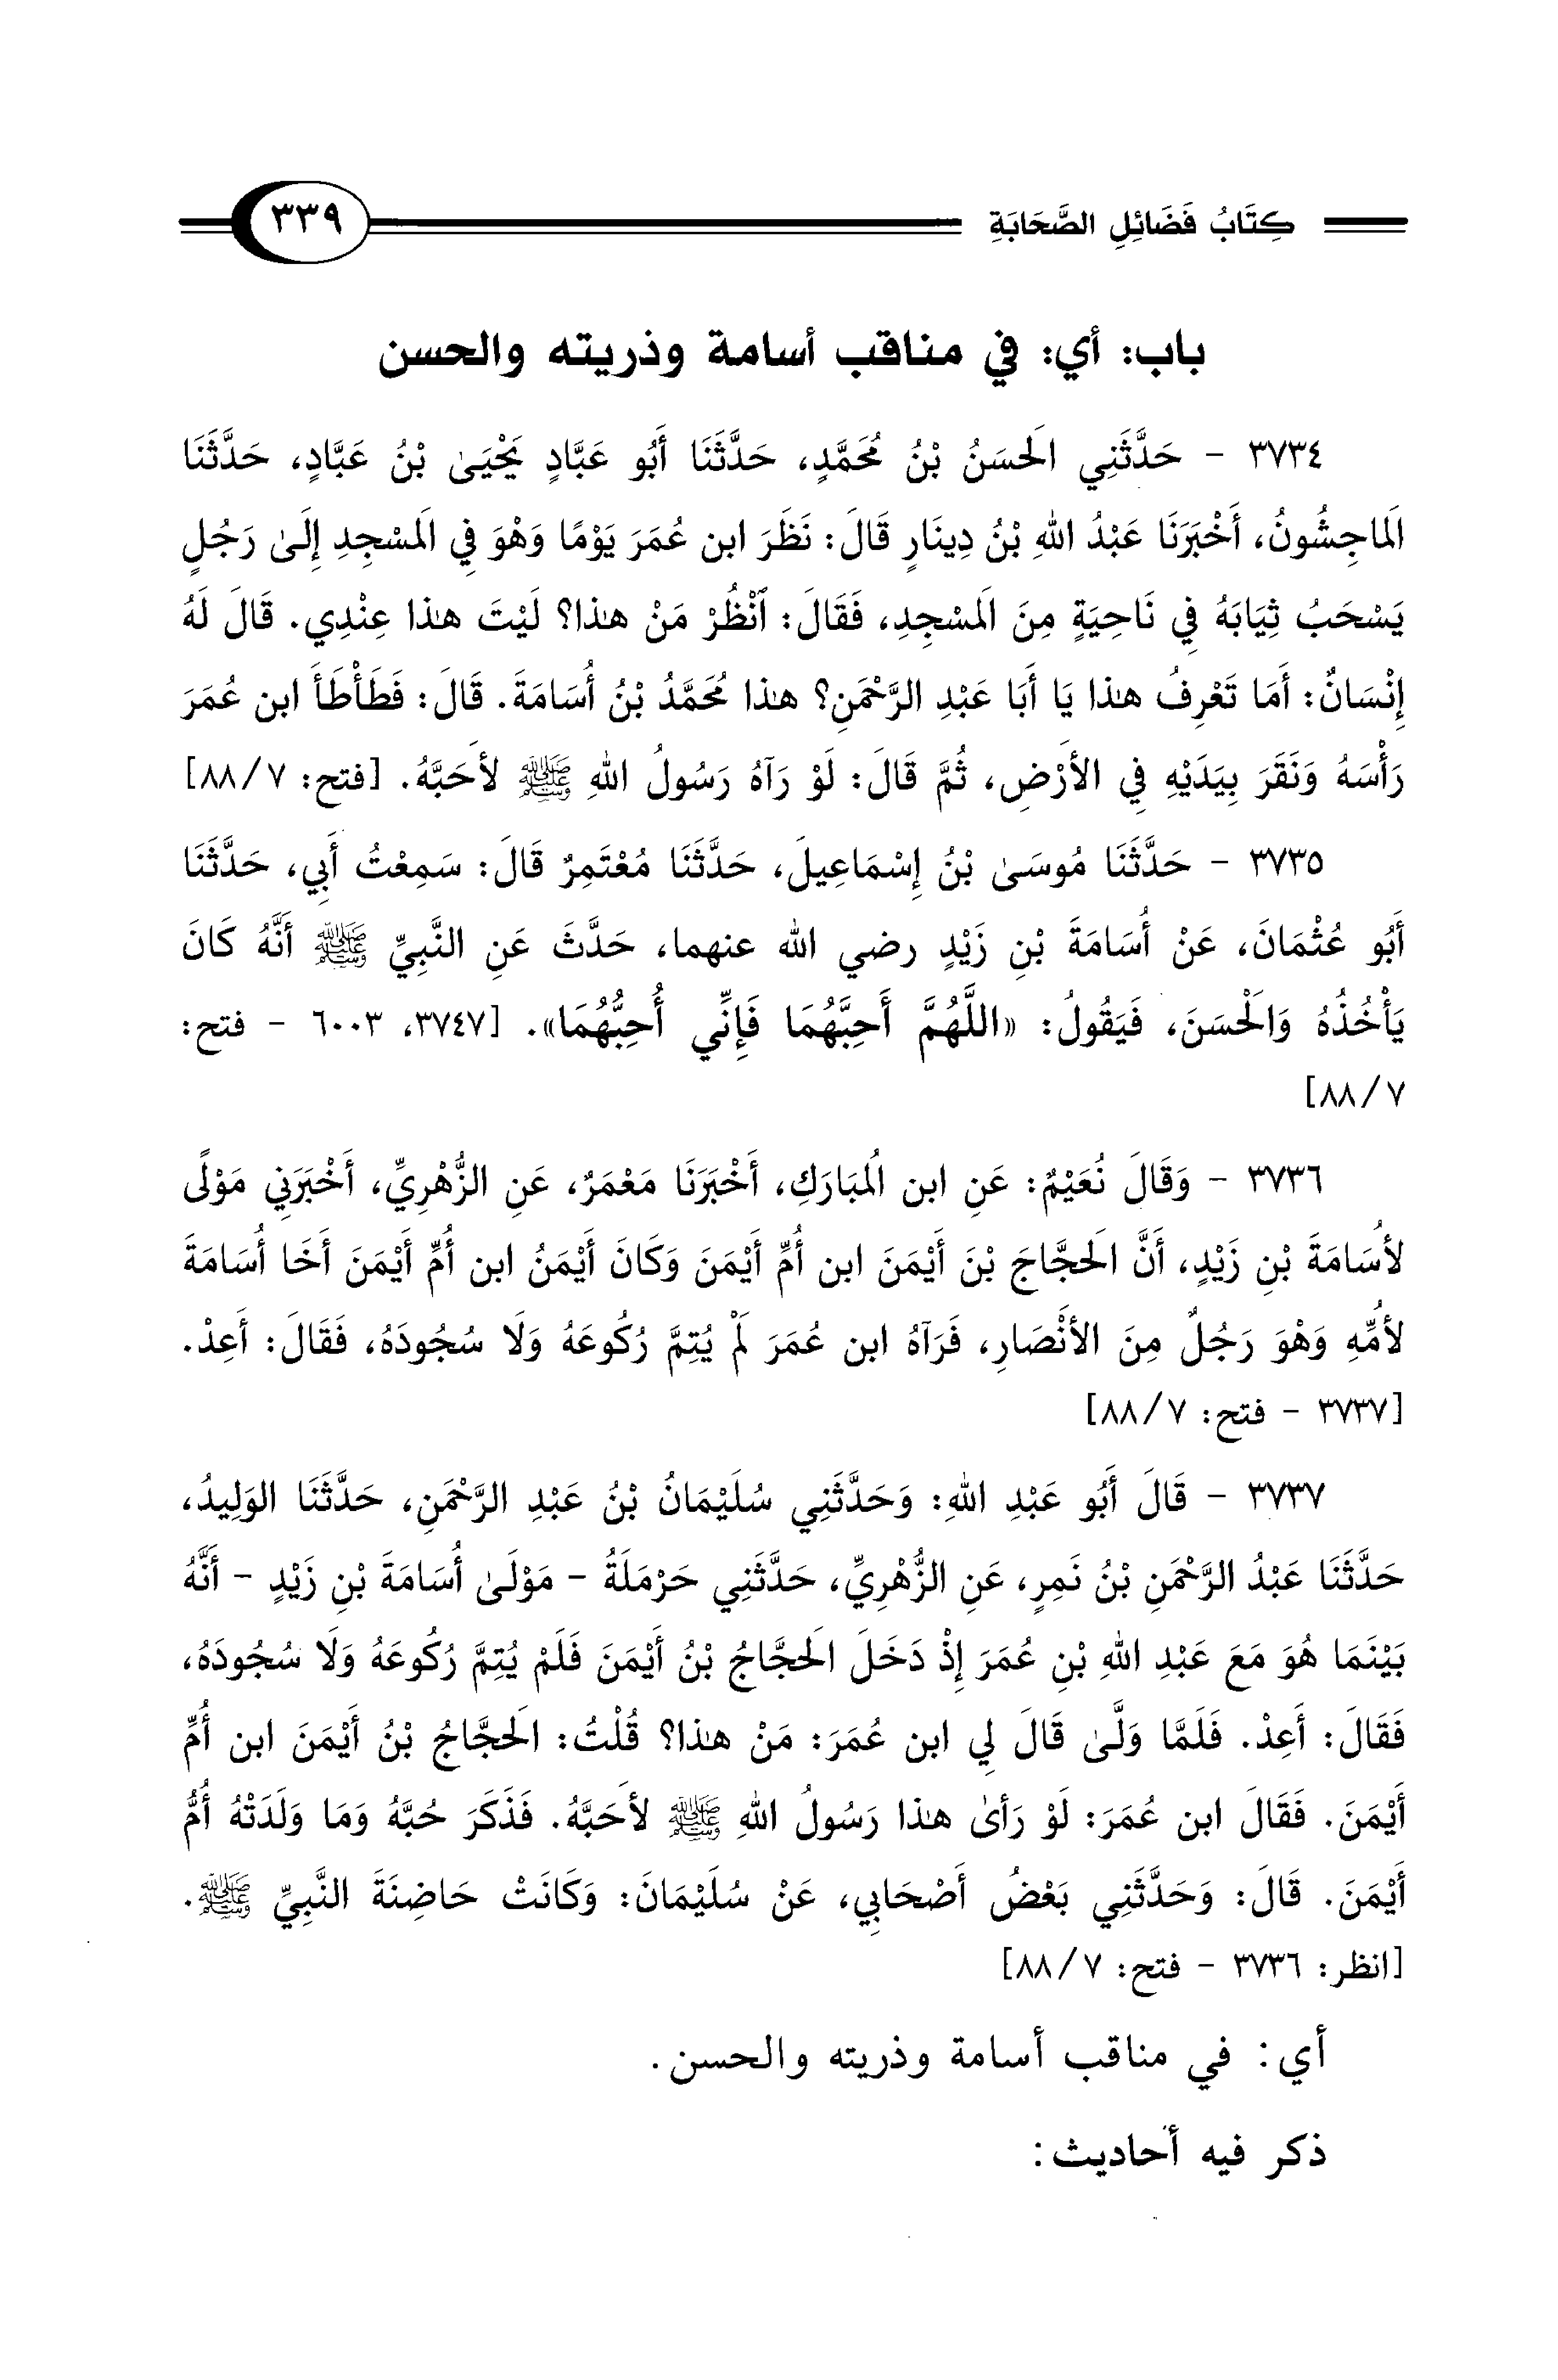 كِتَابُ فَضَائِلِ الصَّحَابَةِ ٣٣٩
باب: أي: في مناقب أسامة وذريته والحسن
٣٧٣٤ - حَدَّثَنِي الَحسَنُ بْنُ مُحَمَّدٍ، حَدَّثَنَا أَبُو عَبَّادٍ يَحْيَىٰ بْنُ عَبَّادٍ، حَدَّثَنَا
الَماجِشُونُ، أَخْبَرَنَا عَبْدُ اللهِ بْنُ دِينَارٍ قَالَ: نَظَرَ ابن عُمَرَ يَوْمًا وَهْوَ فِي الَمسْجِدِ إِلَىٰ رَجُلٍ
يَسْحَبُ ثِيَابَهُ فِي نَاحِيَةٍ مِنَ الَمسْجِدِ، فَقَالَ: ٱنْظُرْ مَنْ هذا؟ لَيْتَ هذا عِنْدِي. قَالَ لَهُ
إِنْسَانٌ: أَمَا تَعْرِفُ هذا يَا أَبَا عَبْدِ الرَّحْمَنِ؟ هذا مُحَمَّدُ بْنُ أُسَامَةَ. قَالَ: فَطَأْطَأَ ابن عُمَرَ
رَأْسَهُ وَنَقَرَ بِيَدَيْهِ فِي الأَرْضِ، ثُمَّ قَالَ: لَوْ رَآهُ رَسُولُ اللهِ ﷺ لأَحَبَّهُ. [فتح: ٧/ ٨٨]
٣٧٣٥ - حَدَّثَنَا مُوسَىٰ بْنُ إِسْمَاعِيلَ، حَدَّثَنَا مُعْتَمِرٌ قَالَ: سَمِعْتُ أَبِي، حَدَّثَنَا
أَبُو عُثْمَانَ، عَنْ أُسَامَةَ بْنِ زَيْدٍ رضي الله عنهما، حَدَّثَ عَنِ النَّبِيِّ ﷺ أَنَّهُ كَانَ
يَأْخُذُهُ وَالْحَسَنَ، فَيَقُولُ: «اللَّهُمَّ أَحِبَّهُمَا فَإِنِّي أُحِبُّهُمَا». [٣٧٤٧، ٦٠٠٣ - فتح:
٧/ ٨٨]
٣٧٣٦ - وَقَالَ نُعَيْمٌ: عَنِ ابن الُمبَارَكِ، أَخْبَرَنَا مَعْمَرٌ، عَنِ الزُّهْرِيِّ، أَخْبَرَنِي مَوْلًى
لأُسَامَةَ بْنِ زَيْدٍ، أَنَّ الَحجَّاجَ بْنَ أَيْمَنَ ابن أُمِّ أَيْمَنَ وَكَانَ أَيْمَنُ ابن أُمِّ أَيْمَنَ أَخَا أُسَامَةَ
لأُمِّهِ وَهْوَ رَجُلٌ مِنَ الأَنْصَارِ، فَرَآهُ ابن عُمَرَ لَمْ يُتِمَّ رُكُوعَهُ وَلَا سُجُودَهُ، فَقَالَ: أَعِدْ.
[٣٧٣٧ - فتح: ٧/ ٨٨]
٣٧٣٧ - قَالَ أَبُو عَبْدِ اللهِ: وَحَدَّثَنِي سُلَيْمَانُ بْنُ عَبْدِ الرَّحْمَنِ، حَدَّثَنَا الوَلِيدُ،
حَدَّثَنَا عَبْدُ الرَّحْمَنِ بْنُ نَمِرٍ، عَنِ الزُّهْرِيِّ، حَدَّثَنِي حَرْمَلَةُ - مَوْلَىٰ أُسَامَةَ بْنِ زَيْدٍ - أَنَّهُ
بَيْنَمَا هُوَ مَعَ عَبْدِ اللهِ بْنِ عُمَرَ إِذْ دَخَلَ الَحجَّاجُ بْنُ أَيْمَنَ فَلَمْ يُتِمَّ رُكُوعَهُ وَلَا سُجُودَهُ،
فَقَالَ: أَعِدْ. فَلَمَّا وَلَّىٰ قَالَ لِي ابن عُمَرَ: مَنْ هذا؟ قُلْتُ: الَحجَّاجُ بْنُ أَيْمَنَ ابن أُمِّ
أَيْمَنَ. فَقَالَ ابن عُمَرَ: لَوْ رَأىٰ هذا رَسُولُ اللهِ ﷺ لأَحَبَّهُ. فَذَكَرَ حُبَّهُ وَمَا وَلَدَتْهُ أُمُّ
أَيْمَنَ. قَالَ: وَحَدَّثَنِي بَعْضُ أَصْحَابِي، عَنْ سُلَيْمَانَ: وَكَانَتْ حَاضِنَةَ النَّبِيِّ ﷺ.
[انظر: ٣٧٣٦ - فتح: ٧/ ٨٨]
أي: في مناقب أسامة وذريته والحسن.
ذكر فيه أحاديث: